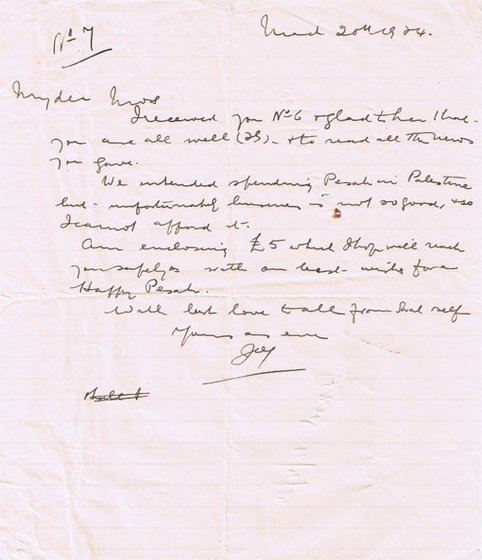 No 7
20th 1934.
My dear Moss
I received your No 6 & glad to hear that
you are all well (25) - & to read all the news
you gave.
We intended spending Pesah in Palestine
but unfortunately business is not so good, & so
I cannot afford it.
Am enclosing £5 which I hope will reach
you safely as with our best wishes for a
Happy Pesah.
With best love to all from and self
Yours as ever